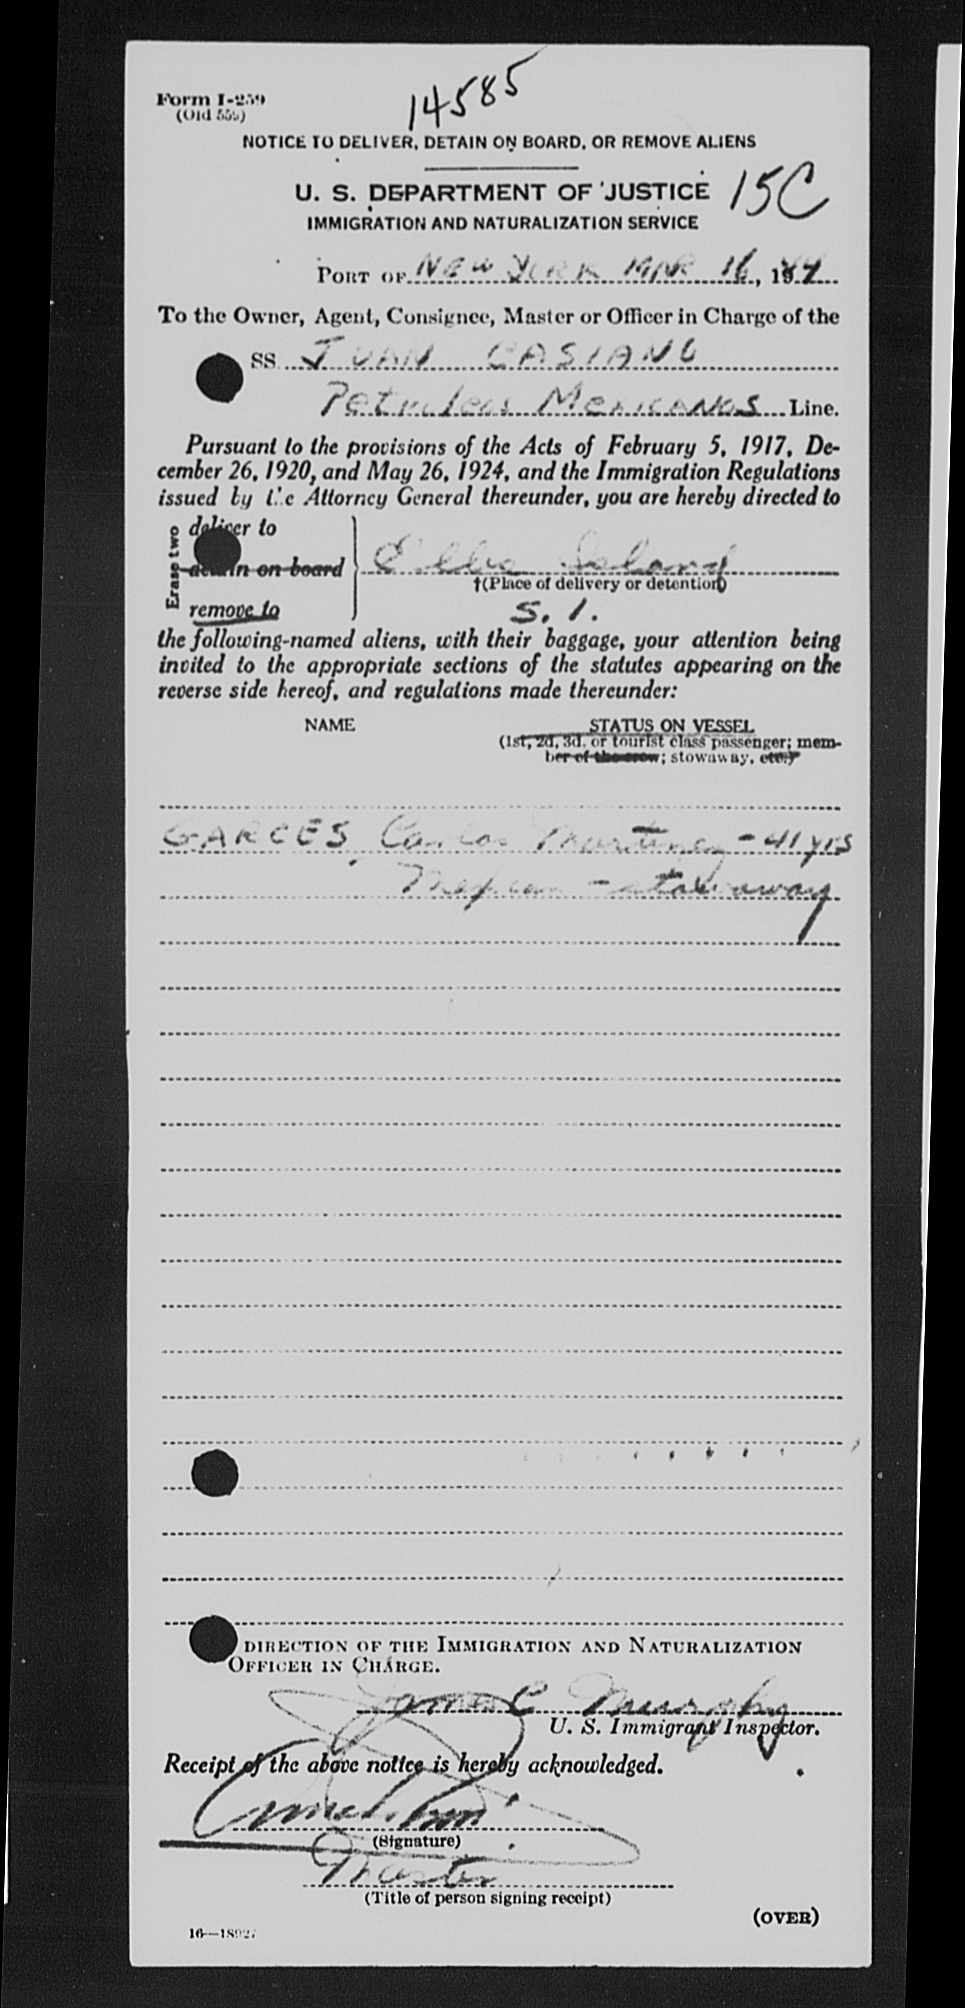 14585
Form I-259
(Old 559)
NOTICE TO DELIVER, DETAIN ON BOARD, OR REMOVE ALIENS
U. S. DEPARTMENT OF JUSTICE 15C
IMMIGRATION AND NATURALIZATION SERVICE
PORT OF NEW YORK MAR 16, 1944
To the Owner, Agent, Consignee, Master or Officer in Charge of the
SS. JUAN CASIANO
Petroleos MEXICANOS Line.
Pursuant to the provisions of the Acts of February 5, 1917, De-
cember 26, 1920, and May 26, 1924, and the Immigration Regulations
issued by the Attorney General thereunder, you are hereby directed to
Erase two
deliver to
detain on board
remove to
Ellis Island
†(Place of delivery or detention)
S. I.
the following-named aliens, with their baggage, your attention being
invited to the appropriate sections of the statutes appearing on the
reverse side hereof, and regulations made thereunder:
NAME STATUS ON VESSEL
(1st, 2d, 3d, or tourist class passenger; mem-
ber of the crew; stowaway, etc.)
GARCES, Carlos Martinez - 41 yrs
Mexican - stowaway
DIRECTION OF THE IMMIGRATION AND NATURALIZATION
OFFICER IN CHARGE.
James C Murphy
U. S. Immigrant Inspector.
Receipt of the above notice is hereby acknowledged.
(Signature)
Master
(Title of person signing receipt)
(OVER)
16—18927